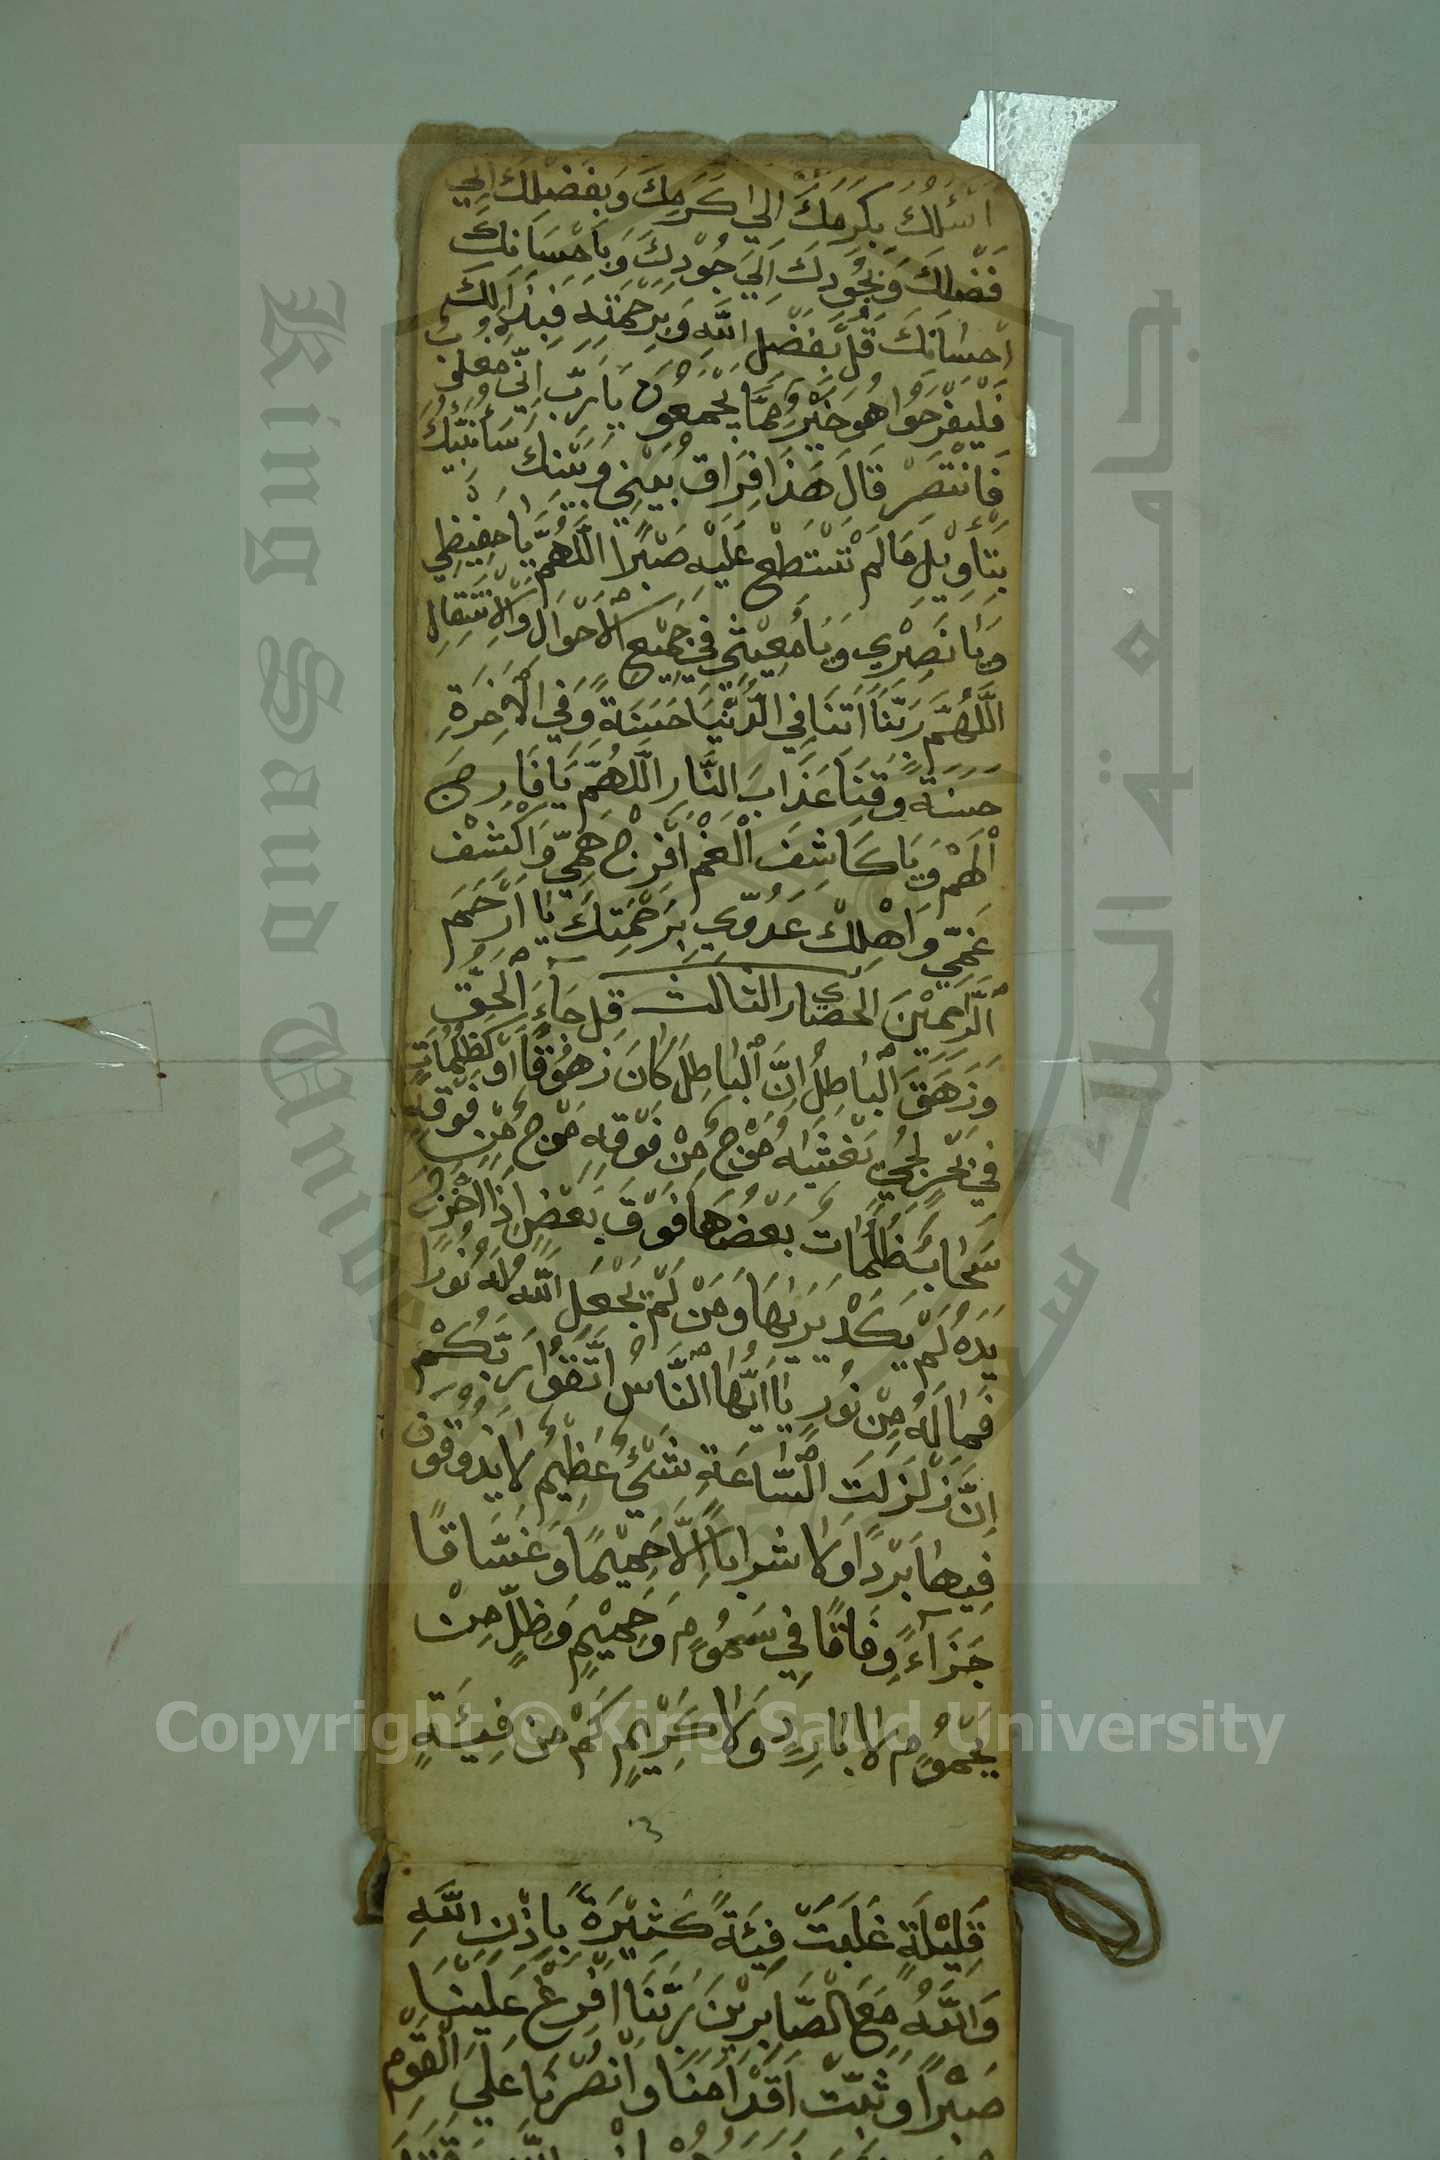 اَسْئَلُكَ بِكَرَمِكَ اِلٰي كَرَمِكَ وَبِفَضْلِكَ اِلٰي
فَضْلِكَ وَبِجُوْدِكَ اِلَيٰ جُوْدِكَ وَبِاِحْسَانِكَ
اِحْسَانِكَ قُلْ بِفَضْلِ اللّٰهِ وَبِرَحْمَتِهِ فَبِذَالِكَ
فَلْيَفْرَحُوْا هُوَ خَيْرٌ مِمَّا يَجْمَعُوْنَ يَا رَبِّ اِنِّي مَغْلُوْبٌ
فَانْتَصِرْ قَالَ هَذَا فِرَاقُ بَيْنِيْ وَبَيْنِكَ سَأُنَبِّيُكَ
بِتَأْوِيْلِ مَا لَمْ تَسْتَطِعْ عَلَيْهِ صَبْرًا اللَّهُمَّ يَا حَفِيْظِي
وَيَا نَصِيْرِي وَيَا مُعِيْنِيْ فِي جَمِيْعِ الْاَحْوَالِ وَالْاِنْتِقَالِ
اللَّهُمَّ رَبَّنَا اٰتِنَا فِي الدُّنْيَا حَسَنَةً وَفِي الْاٰخِرَةِ
حَسَنَةً وَقِنَا عَذَابَ النَّارِ اللَّهُمَّ يَا فَارِجَ
الْهَمِّ وَيَا كَاشِفَ الْغَمِّ اَفْرِجْ هَمِّيْ وَاكْشُفْ
غَمِّيْ وَاَهْلِكْ عَدُوِّيْ بِرَحْمَتِكَ يَا اَرْحَمَ
الرَّاحِمِيْنَ الحصار الثالث قُلْ جَآءَ الْحَقُّ
وَزَهَقَ الْبَاطِلُ اِنَّ الْبَاطِلَ كَانَ زَهُوْقًا اَوْ كَظُلُمَاتٍ
فِي بَحْرٍ لُجِّيٍّ يَغْشٰيهُ مَوْجٌ مِنْ فَوْقِهِ مَوْجٌ مِنْ فَوْقِهِ
سَحَابٌ ظُلُمَاتٌ بَعْضُهَا فَوْقَ بَعْضٍ اِذَا اَخْرَجَ
يَدَهُ لَمْ يَكَدْ يَرٰيهَا وَمَنْ لَمْ يَجْعَلِ اللّٰهُ لَهُ نُوْرًا
فَمَا لَهُ مِنْ نُوْرٍ يَا اَيُّهَا النَّاسُ اتَّقُوْا رَبَّكُمْ
اِنَّ زَلْزَلَتَ السَّاعَةِ شَيْءٌ عَظِيْمٌ لَا يَذُوْقُوْنَ
فِيهَا بَرْدًا وَلَا شَرَابًا اِلَّا حَمِيْمًا وَغَسَّاقًا
جَزَآءً وِفَاقًا فِي سَمُوْمٍ وَحَمِيْمٍ وَظِلٍّ مِنْ
يَحْمُوْمٍ لَا بَارِدٍ وَلَا كَرِيْمٍ كَمْ مِنْ فِيْئَةٍ
قَلِيْلَةٍ غَلَبَتْ فِيْئَةً كَثِيْرَةً بِاِذْنِ اللّٰهِ
وَاللّٰهُ مَعَ الصَّابِرِيْنَ رَبَّنَا اَفْرِغْ عَلَيْنَا
صَبْرًا وَثَبِّتْ اَقْدَامَنَا وَانْصُرْنَا عَلَى الْقَوْمِ
Copyright © King Saud University
King Saud University
جامعة الملك سعود